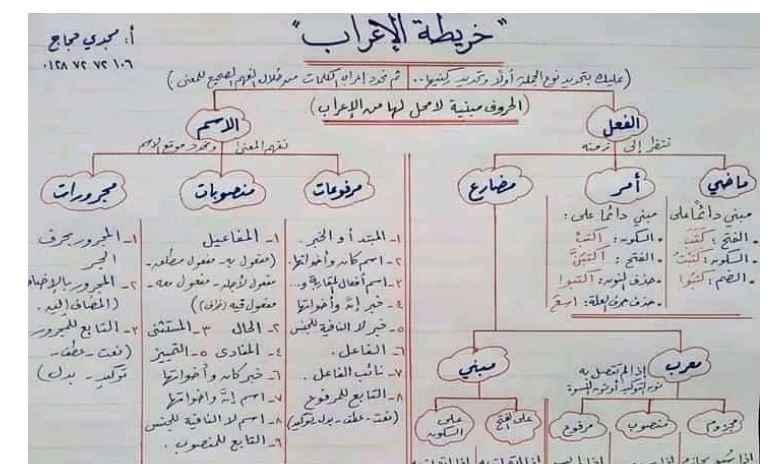 "خريطة الإعراب"
أ: مجدي حجاج
٠١٢٨ ٧٢ ٧٢ ١٠٦
(عليك بتحديد نوع الجملة أولًا وتحديد ركنيها.. ثم تحدد إعراب الكلمات من خلال الفهم الصحيح للمعنى)
(الحروف مبنية لا محل لها من الإعراب)
الفعل
ننظر إلى زمنه
ماضي
مبني دائمًا على
• الفتح: كَتَبَ
• السكون: كَتَبْتُ
• الضم: كَتَبُوا
أمر
مبني دائمًا على:
• السكون: اكتبْ
• الفتح: اكتبَنَّ
• حذف النون: اكتبوا
• حذف حرف العلة: اسعَ
مضارع
معرب
إذا لم تتصل به
نون التوكيد أو نون النسوة
مجزوم
منصوب
مرفوع
مبني
على الفتح
على السكون
الاسم
نفهم المعنى ونحدد موقع الاسم
مرفوعات
١- المبتدأ والخبر.
٢- اسم كان وأخواتها.
٣- اسم أفعال المقاربة و...
٤- خبر إنَّ وأخواتها
٥- خبر لا النافية للجنس
٦- الفاعل.
٧- نائب الفاعل.
٨- التابع للمرفوع
(نعت - عطف - بدل - توكيد)
منصوبات
١- المفاعيل
(مفعول به - مفعول مطلق -
مفعول لأجله - مفعول معه -
مفعول فيه (ظرف)
٢- الحال ٣- المستثنى
٤- المنادى ٥- التمييز
٦- خبر كان وأخواتها
٧- اسم إنَّ وأخواتها
٨- اسم لا النافية للجنس
٩- التابع للمنصوب.
مجرورات
١- المجرور بحرف
الجر
٢- المجرور بالإضا
(المضاف إليه.
٣- التابع للمجرور
(نعت - عطف -
توكيد - بدل)